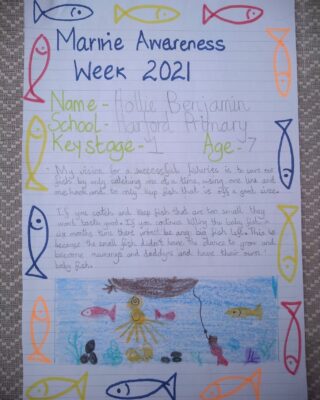 Marine Awareness
Week 2021
Name - Hollie Benjamin
School - Harford Primary
Key stage - 1 Age - 7
My vision for a successful fisheries is to save our
fish by only catching one at a time using one line and
one hook and to only keep fish that is of a good size.
If you catch and keep fish that are too small they
won't taste good. If you continue killing the baby fish in
six months time there won't be any big fish left. This is
because the small fish didn't have the chance to grow and
become mummys and daddys and have their own
baby fish.